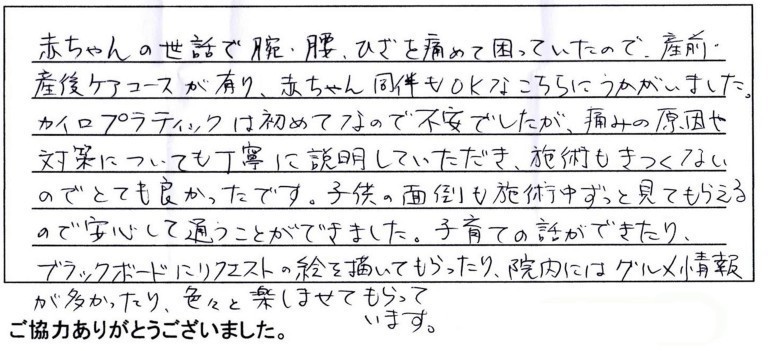 赤ちゃんの世話で腕・腰、ひざを痛めて困っていたので、産前・
産後ケアコースが有り、赤ちゃん同伴もOKなこちらにうかがいました。
カイロプラティックは初めてなので不安でしたが、痛みの原因や
対策についても丁寧に説明していただき、施術もきつくない
のでとても良かったです。子供の面倒も施術中ずっと見てもらえる
ので安心して通うことができました。子育ての話ができたり、
ブラックボードにリクエストの絵を描いてもらったり、院内にはグルメ情報
が多かったり、色々と楽しませてもらって
います。
ご協力ありがとうございました。